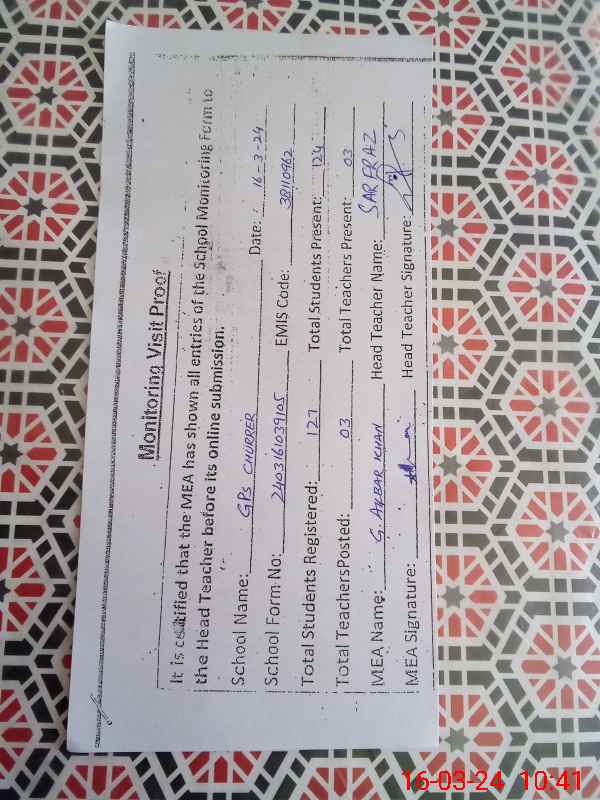 Monitoring Visit Proof
It is certified that the MEA has shown all entries of the School Monitoring Form to
the Head Teacher before its online submission.
School Name: GPS CHURRER Date: 16-3-24
School Form No: 2403161039105 EMIS Code: 38110962
Total Students Registered: 127 Total Students Present: 124
Total TeachersPosted: 03 Total Teachers Present: 03
MEA Name: G. AKBAR KHAN Head Teacher Name: SARFRAZ
MEA Signature: Head Teacher Signature:
16-03-24 10:41